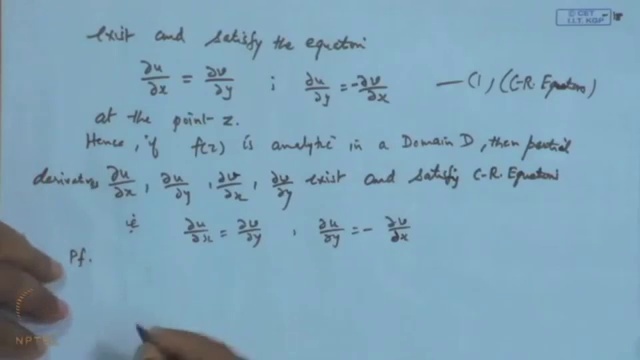 © CET
I.I.T. KGP
exist and satisfy the equation
∂u/∂x = ∂v/∂y ; ∂u/∂y = -∂v/∂x —(1) (C-R. Equations)
at the point z.
Hence, if f(z) is analytic in a Domain D, then partial
derivatives ∂u/∂x, ∂u/∂y, ∂v/∂x, ∂v/∂y exist and satisfy C-R. Equations
ie ∂u/∂x = ∂v/∂y , ∂u/∂y = - ∂v/∂x
Pf.
NPTEL